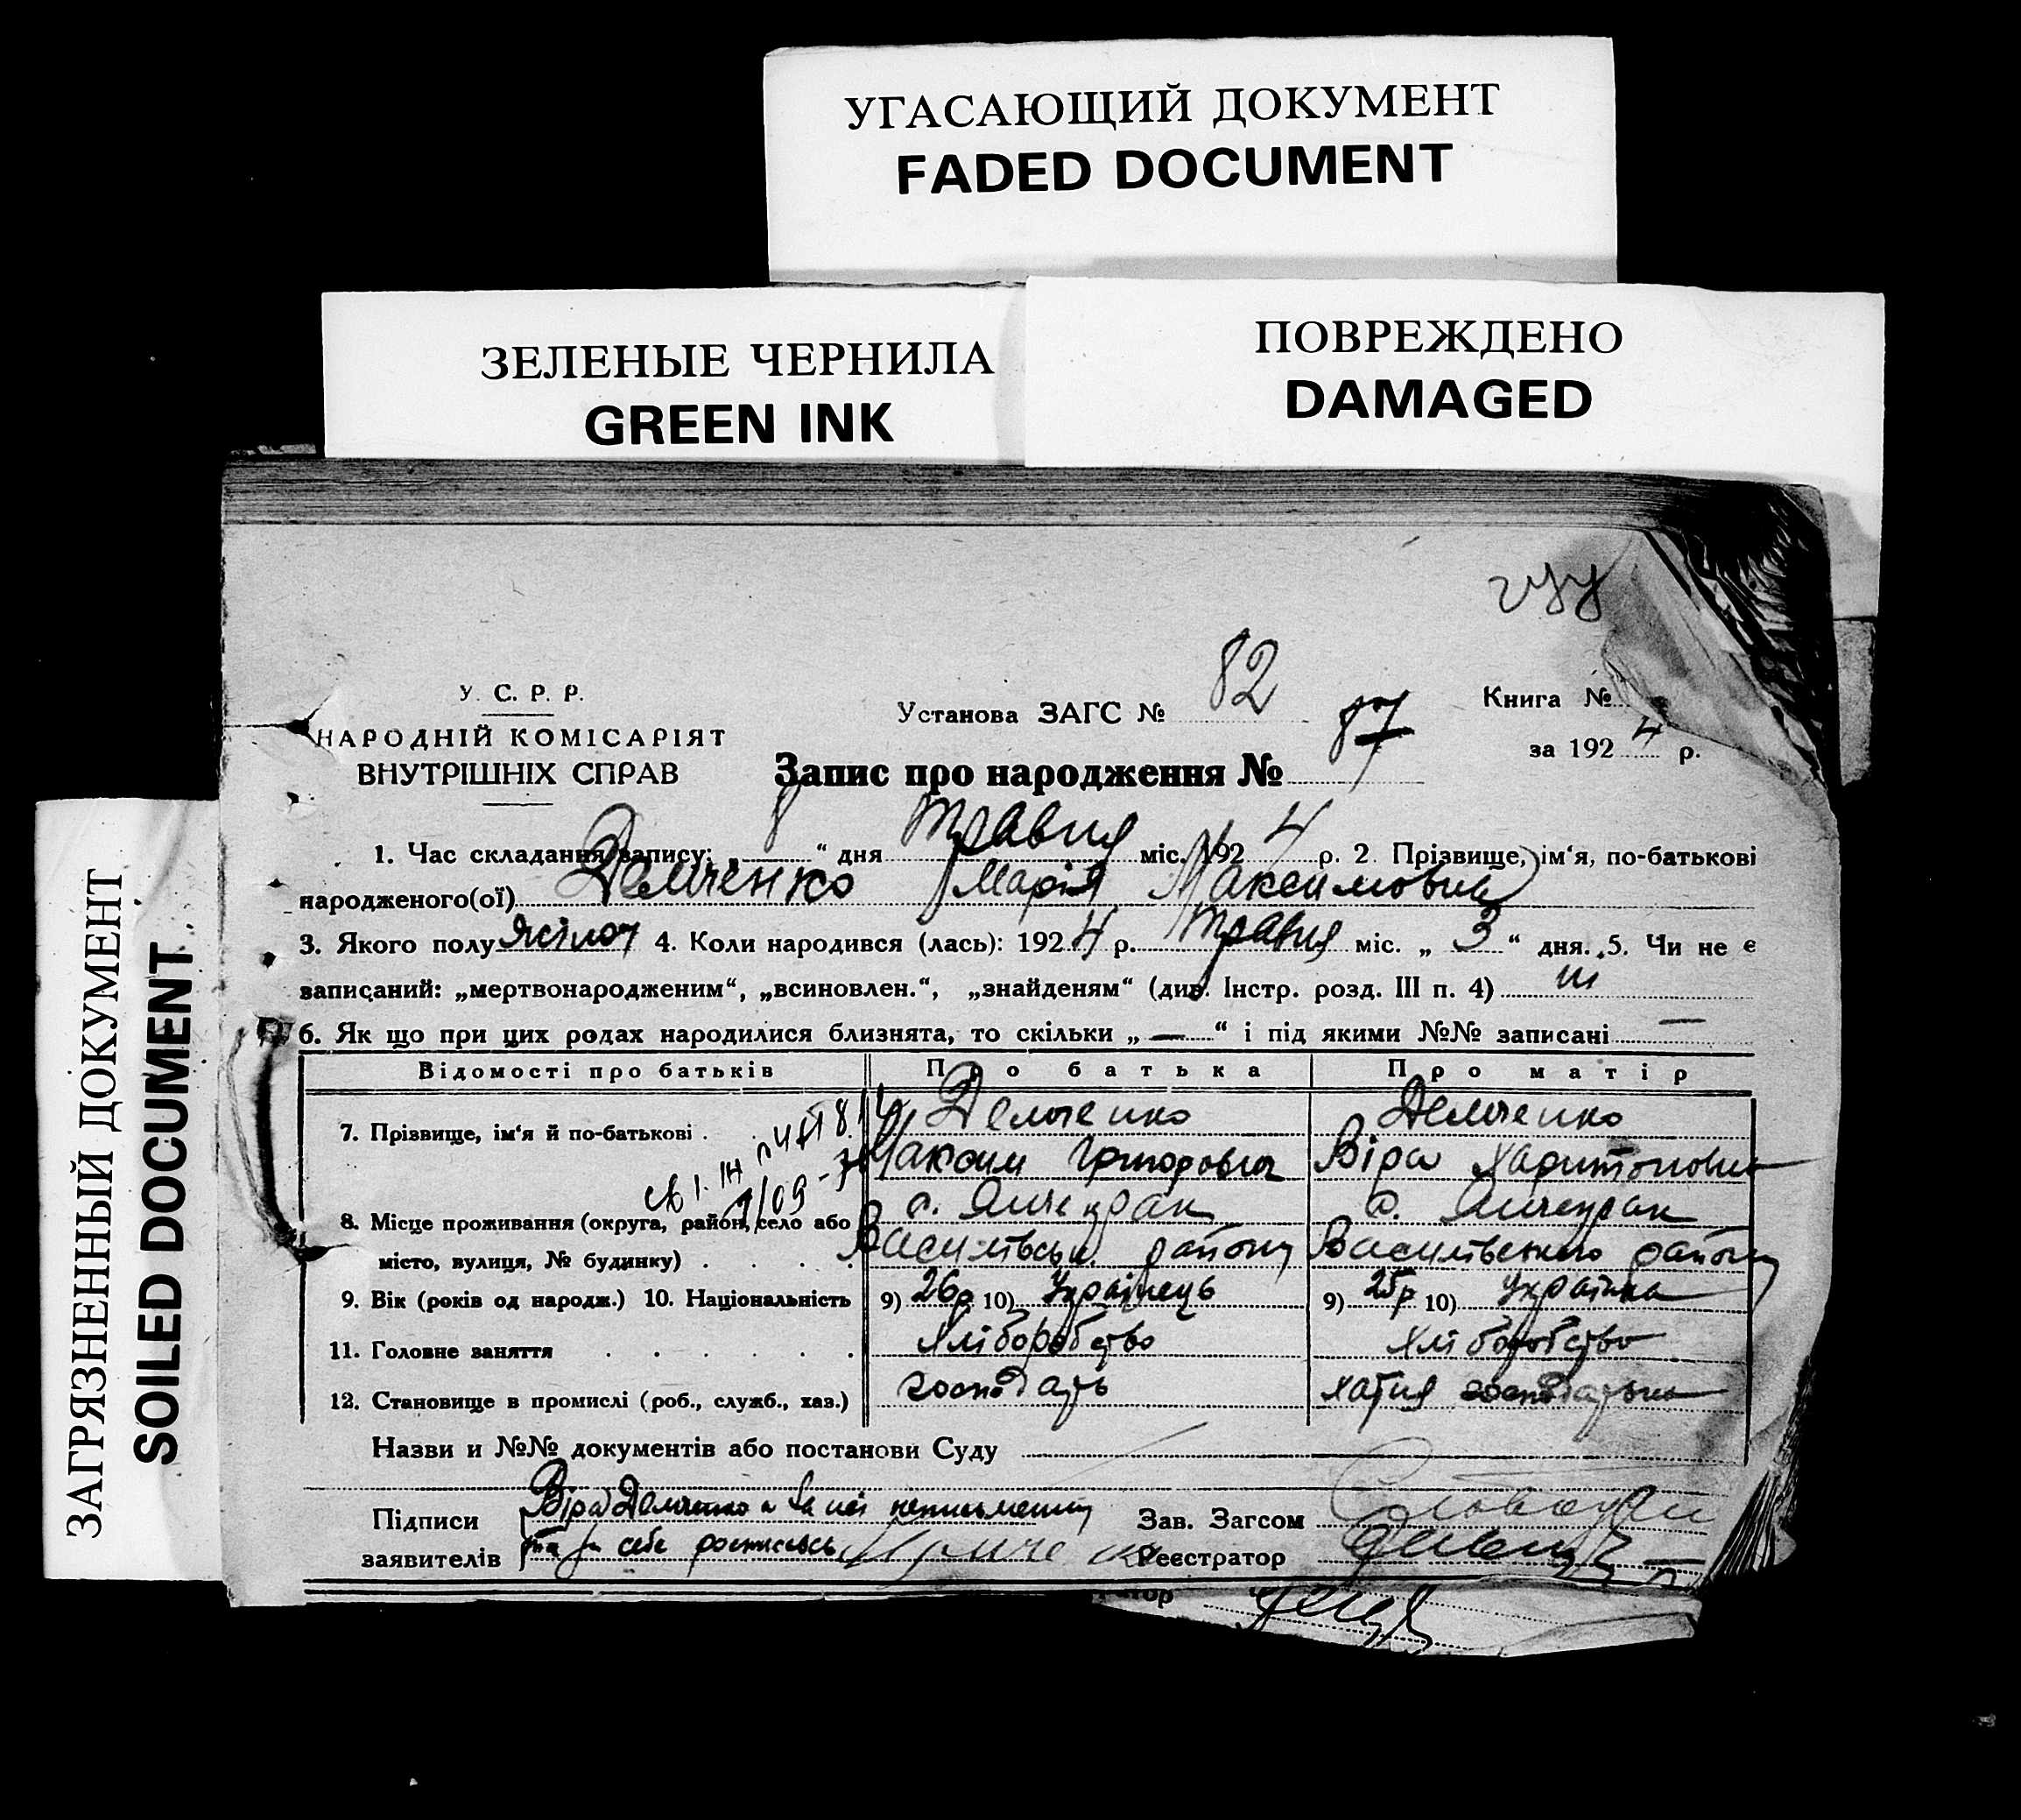 УГАСАЮЩИЙ ДОКУМЕНТ
FADED DOCUMENT
ЗЕЛЕНЫЕ ЧЕРНИЛА
GREEN INK
ПОВРЕЖДЕНО
DAMAGED
ЗАГРЯЗНЕННЫЙ ДОКУМЕНТ
SOILED DOCUMENT
У. С. Р. Р.
НАРОДНІЙ КОМІСАРІЯТ
ВНУТРІШНІХ СПРАВ
Установа ЗАГС № 82
Книга №
за 1924 р.
Запис про народження № 87
1. Час складання запису: „8“ дня травня міс. 1924 р. 2 Прізвище, ім‘я, по-батькові
народженого(ої) Демченко Марія Максимовна
3. Якого полу жіноч 4. Коли народився (лась): 1924 р. травня міс. „3“ дня. 5. Чи не є
записаний: „мертвонародженим“, „всиновлен.“, „знайденям“ (див. Інстр. розд. III п. 4) ні
6. Як що при цих родах народилися близнята, то скільки „—“ і під якими №№ записані —
Відомості про батьків Про батька Про матір
7. Прізвище, ім‘я й по-батькові . Демченко Демченко
Максим Григорович Віра Харитоновна
8. Місце проживання (округа, район, село або с. Янчекрак с. Янчекрак
місто, вулиця, № будинку) . . . . Василівськ. району Василівського району
9. Вік (років од народж.) 10. Національність 9) 26р 10) Українець 9) 25р 10) Українка
11. Головне заняття . . . . . . Хліборобство Хліборобство
12. Становище в промислі (роб., служб., хаз.) господарь хатня господарька
Назви и №№ документів або постанови Суду
Підписи Віра Демченко а за неї неписьменну Зав. Загсом
заявителів та за себе росписавсь Реєстратор